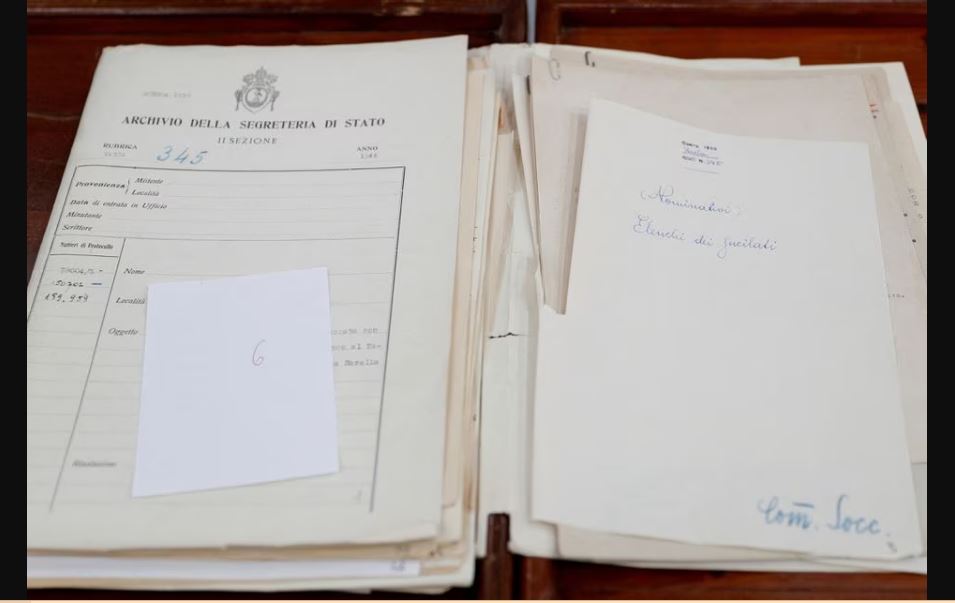 ARCHIVIO DELLA SEGRETERIA DI STATO
II SEZIONE
RUBRICA
345
ANNO
Provenienza
Mittente
Località
Data di entrata in Ufficio
Minutante
Scrittore
Numeri di Protocollo
Nome
Località
Oggetto
6
(Nominativi)
Elenchi dei fucilati
Com. Socc.